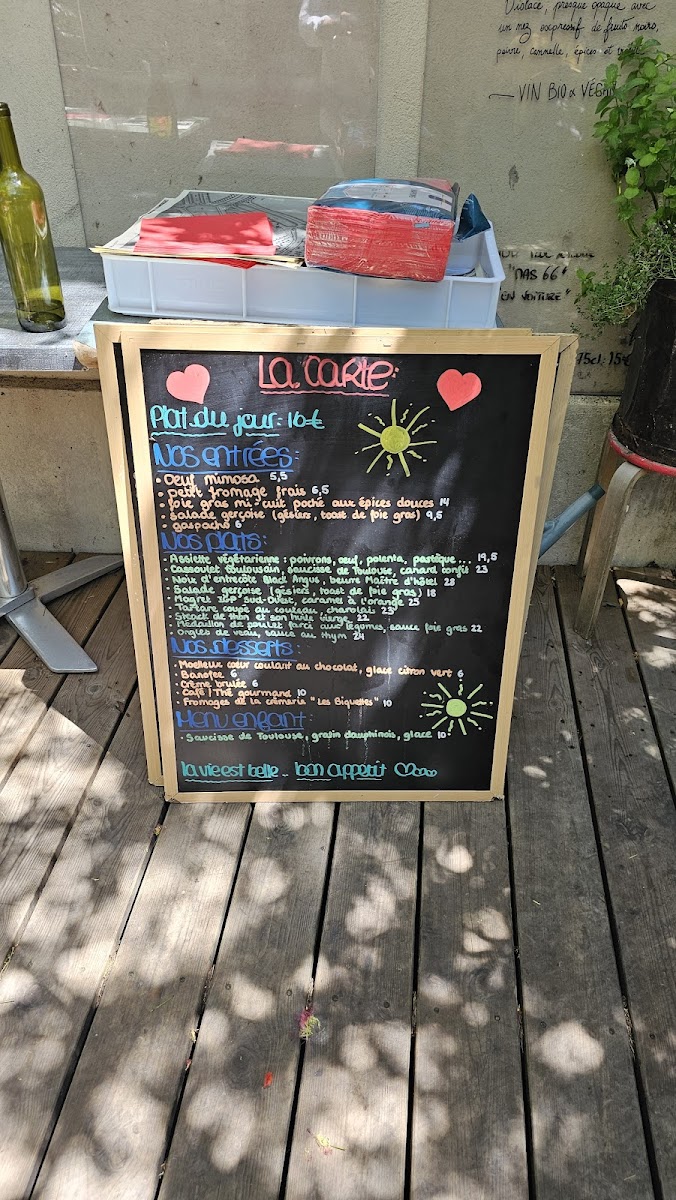 Violacé, presque opaque avec
un nez expressif de fruits noirs,
poivre, cannelle, épices et
— VIN BIO & VEGAN
"MAS 66"
EN VOITURE"
75cl: 15€
La Carte:
Plat du jour: 16€
Nos entrées:
• Oeuf mimosa 5,5
• petit fromage frais 6,5
• foie gras mi-cuit poché aux épices douces 14
• salade gerçoise (gésiers, toast de foie gras) 9,5
• gaspacho 6
Nos plats:
• Assiette végétarienne : poivrons, oeuf, polenta, pastèque... 19,5
• Cassoulet toulousain, saucisse de Toulouse, canard confit 23
• Noix d'entrecôte Black Angus, beurre Maître d'hôtel 28
• Salade gerçoise (gésiers, toast de foie gras) 18
• Magret IGP Sud-Ouest, caramel à l'orange 25
• Tartare coupé au couteau, charolais 23
• Steack de thon et son huile vierge 22
• Médaillon de poulet farci aux légumes, sauce foie gras 22
• Onglet de veau, sauce au thym 24
Nos desserts:
• Moelleux coeur coulant au chocolat, glace citron vert 6
• Banofee 6
• Crème brulée 6
• Café | Thé gourmand 10
• Fromages de la crèmerie "Les Biquettes" 10
Menu enfant:
• Saucisse de Toulouse, gratin dauphinois, glace 10
la vie est belle - bon appétit